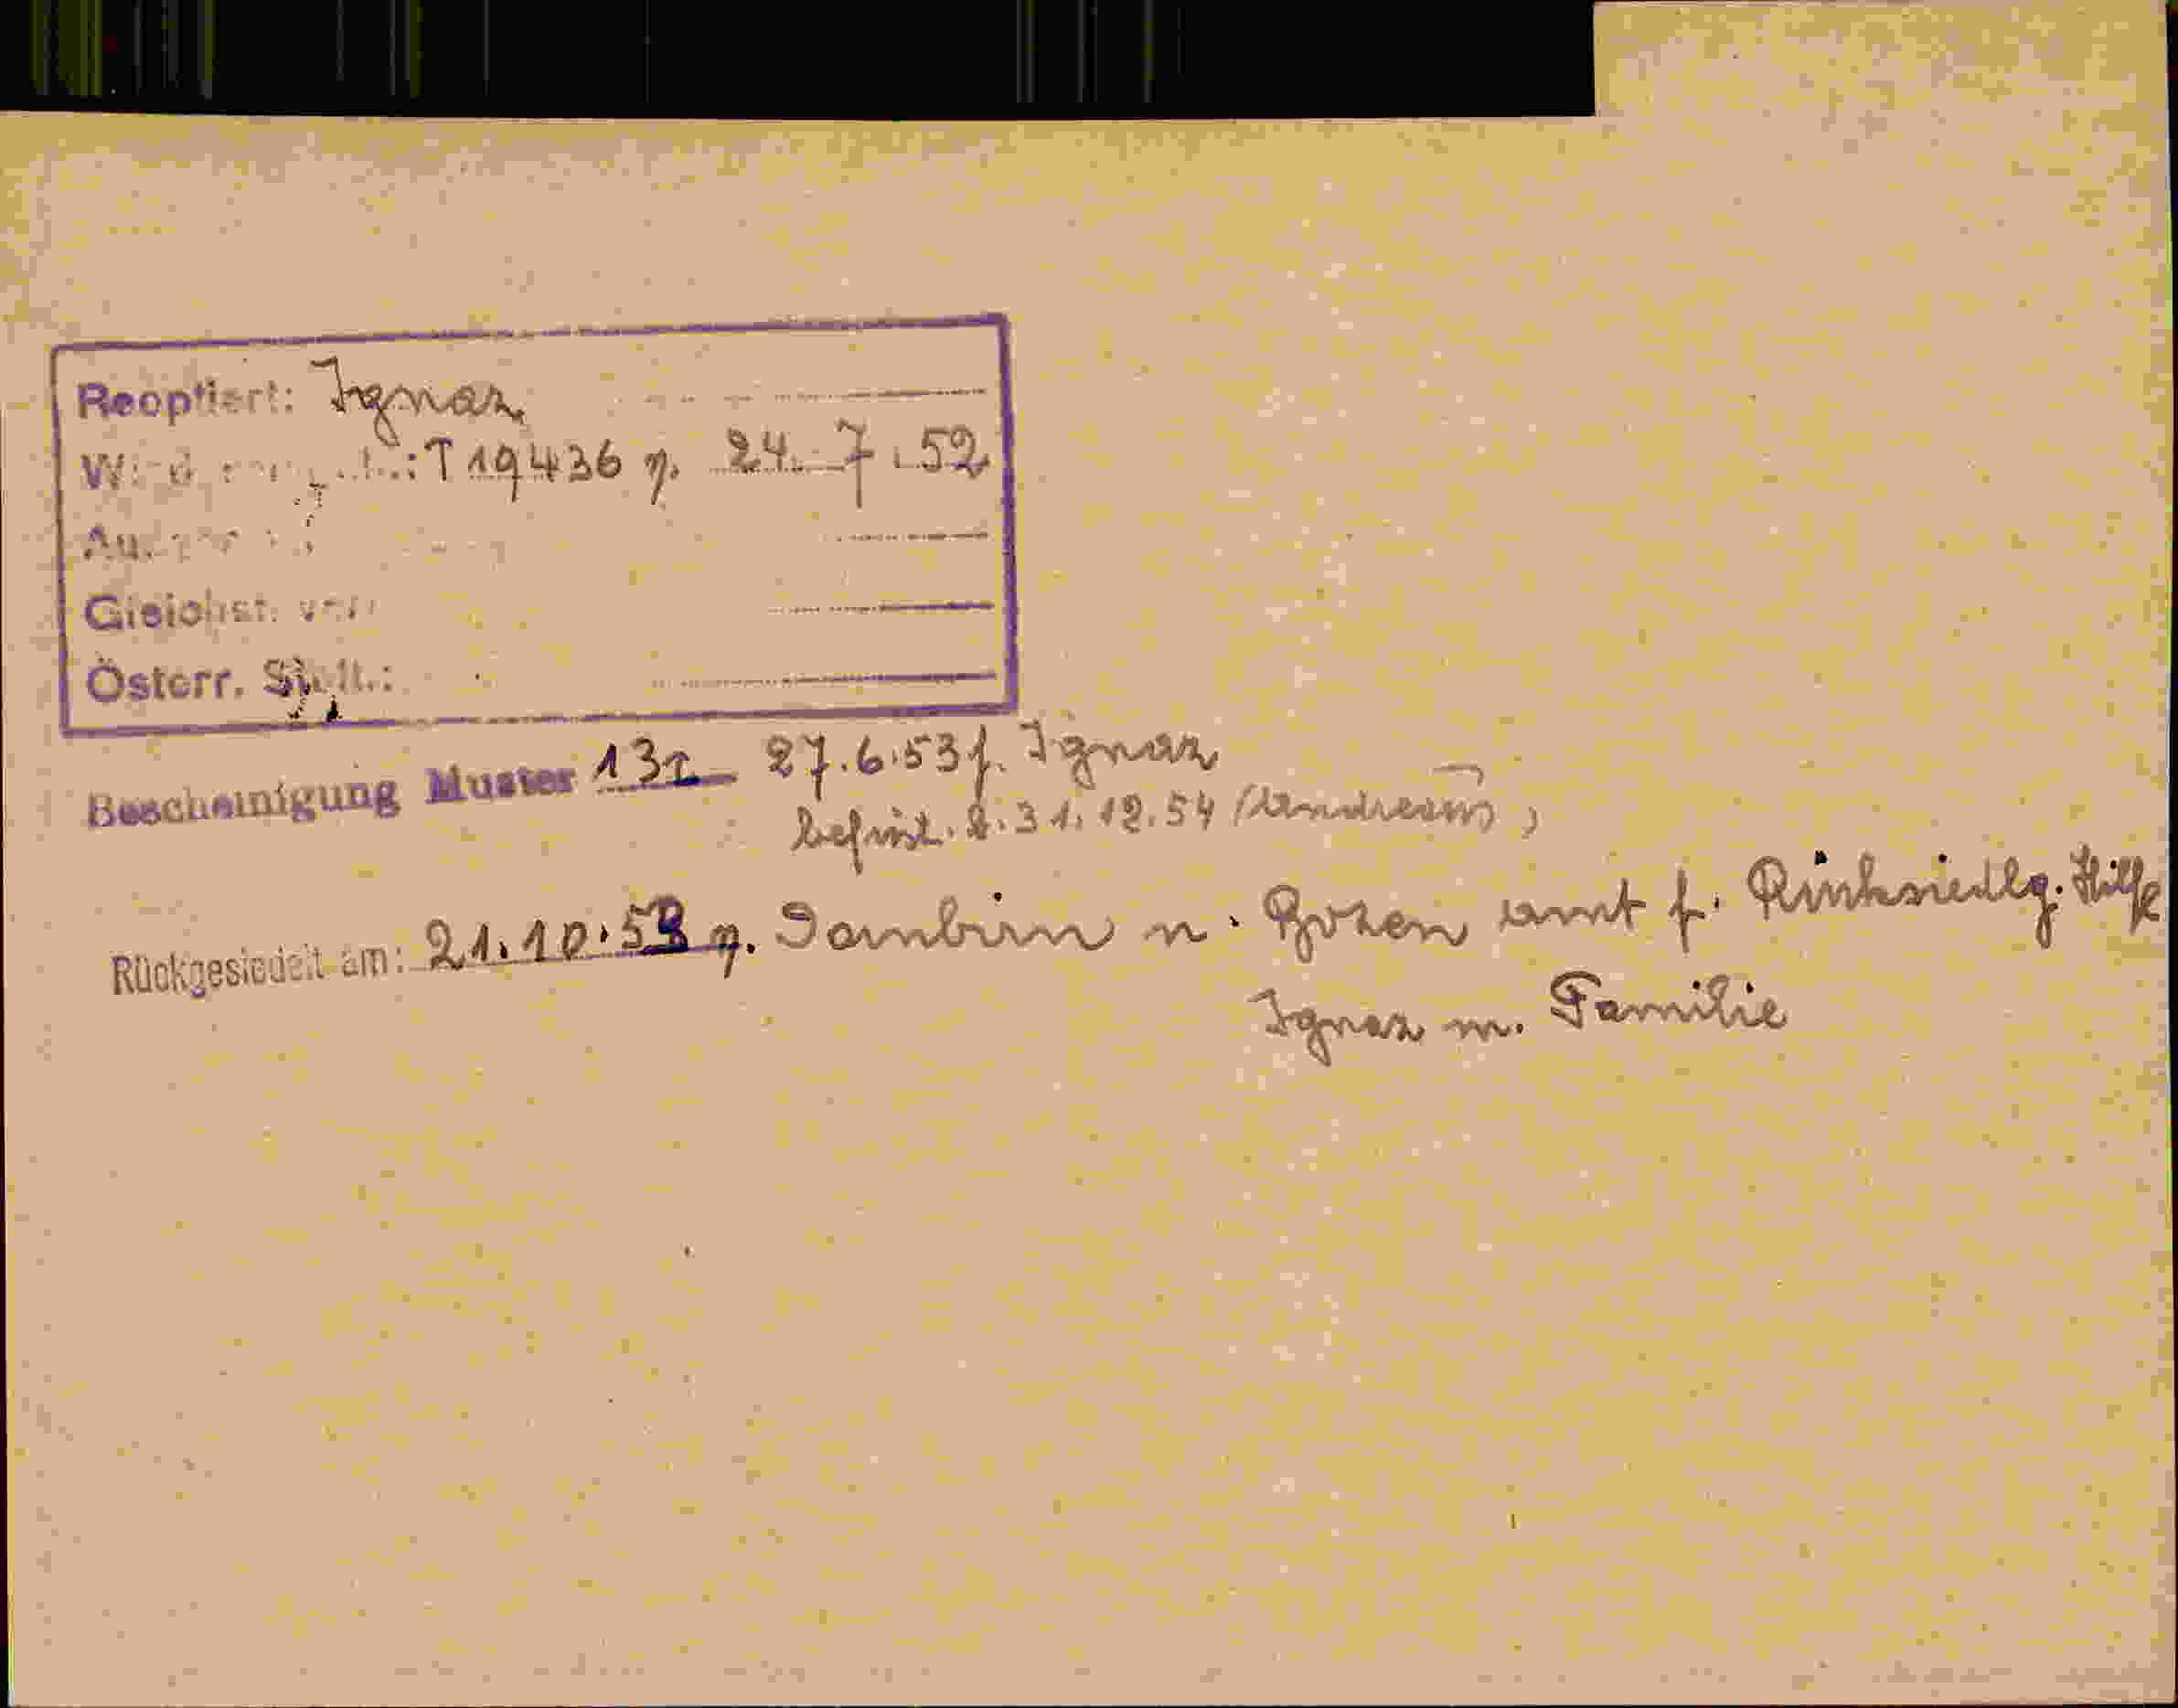 Reoptiert: Ignaz
T 19436 v. 24. 7. 52
Gleichst.
Österr. Stslt.:
Bescheinigung Muster 13a 27.6.53 f. Ignaz
befrist. b. 31.12.54
Rückgesiedelt am: 21.10.53 v. Dornbirn n. Bozen amt f. Rücksiedlg. Hilfe
Ignaz m. Familie